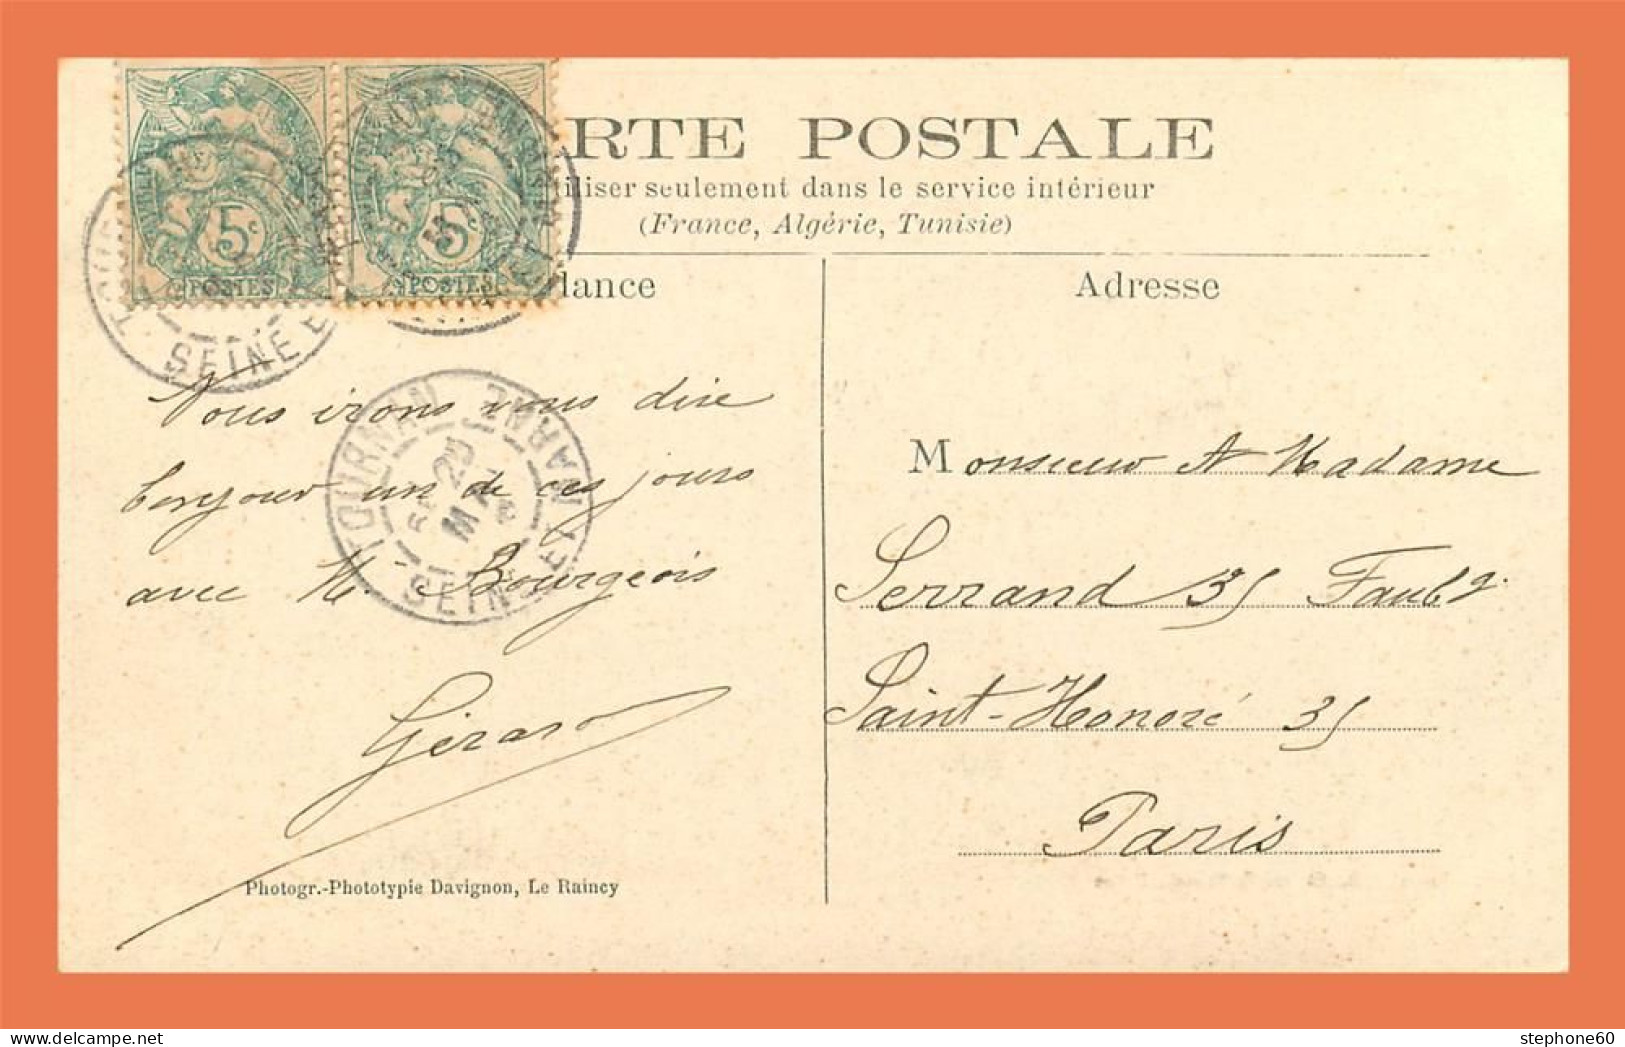 RTE POSTALE
iliser seulement dans le service intérieur
(France, Algérie, Tunisie)
5c
POSTES
5c
POSTES
dance
Adresse
SEINE E
TOURNAN
SEINE ET MARNE
25
MAI
Nous irons vous dire
bonjour un de ces jours
avec M. Bourgeois
Monsieur et Madame
Serrand 35 Faubg.
Saint-Honoré 35
Paris
Photogr.-Phototypie Davignon, Le Raincy
stephone60